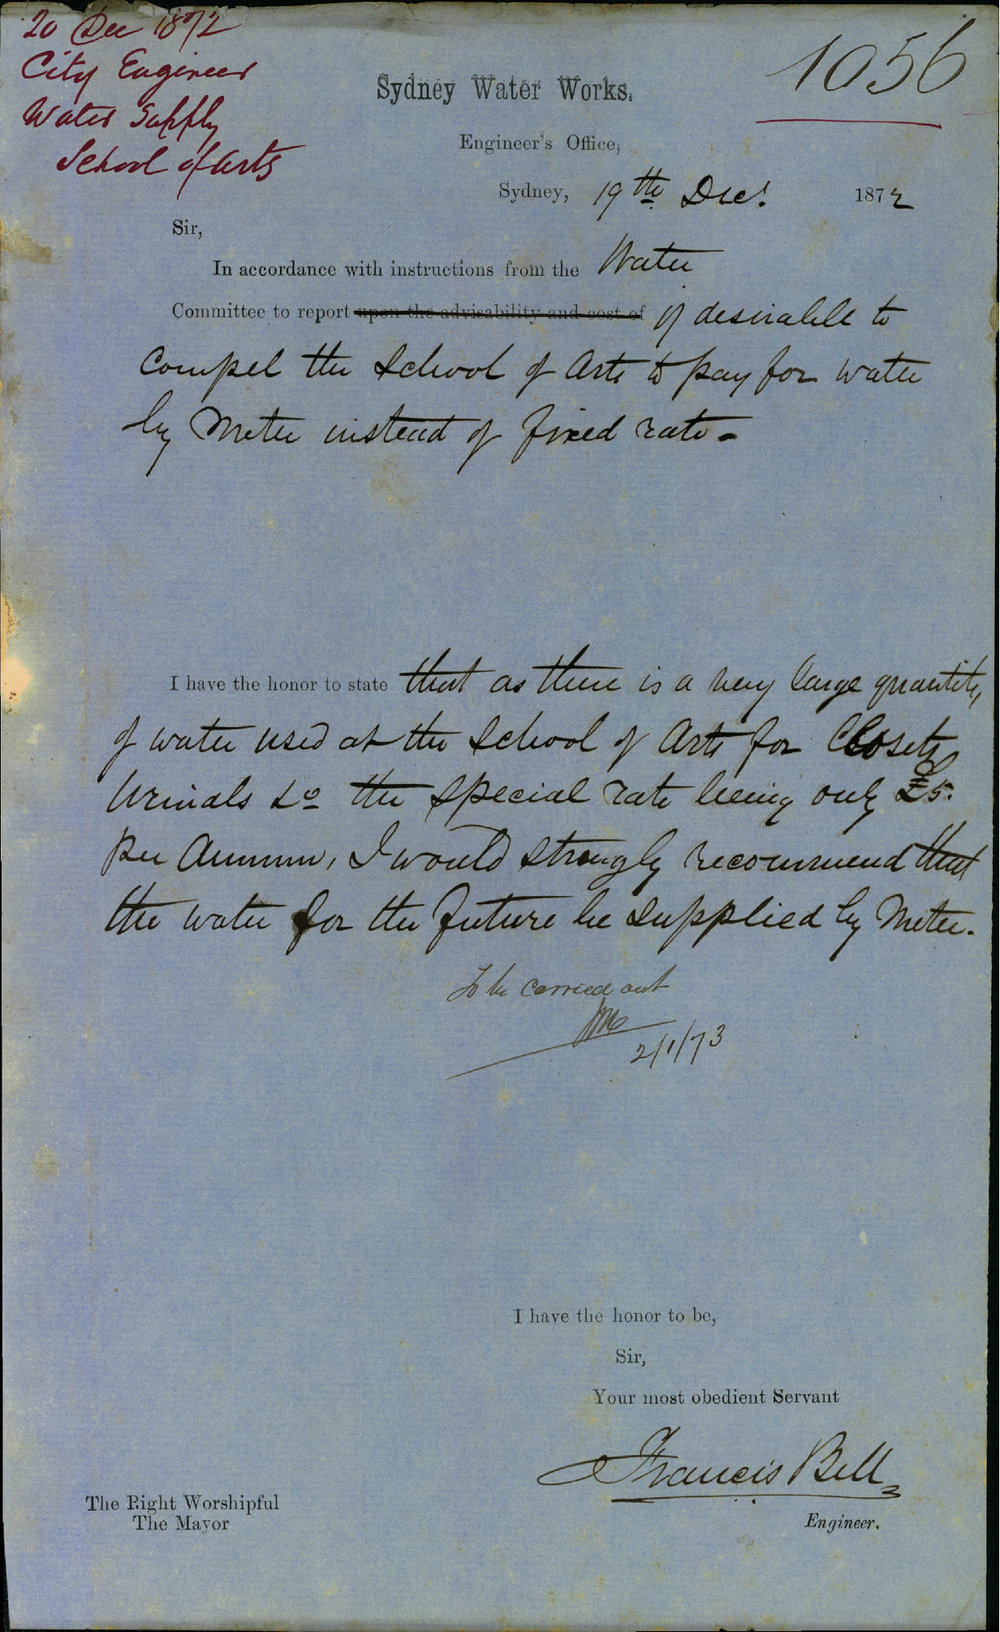 20 Dec 1872
City Engineer
Water Supply
School of Arts
1056
Sydney Water Works.
Engineer's Office,
Sydney, 19th Dec. 1872
Sir,
In accordance with instructions from the Water
Committee to report upon the advisability and cost of if desirable to
compel the School of Arts to pay for water
by Meter instead of fixed rate -
I have the honor to state that as there is a very large quantity
of water used at the School of Arts for Closets
Urinals &c the special rate being only £5.
Per Annum, I would strongly recommend that
the water for the future be supplied by Meter.
To be carried out
2/1/73
I have the honor to be,
Sir,
Your most obedient Servant
Francis Bell
Engineer.
The Right Worshipful
The Mayor